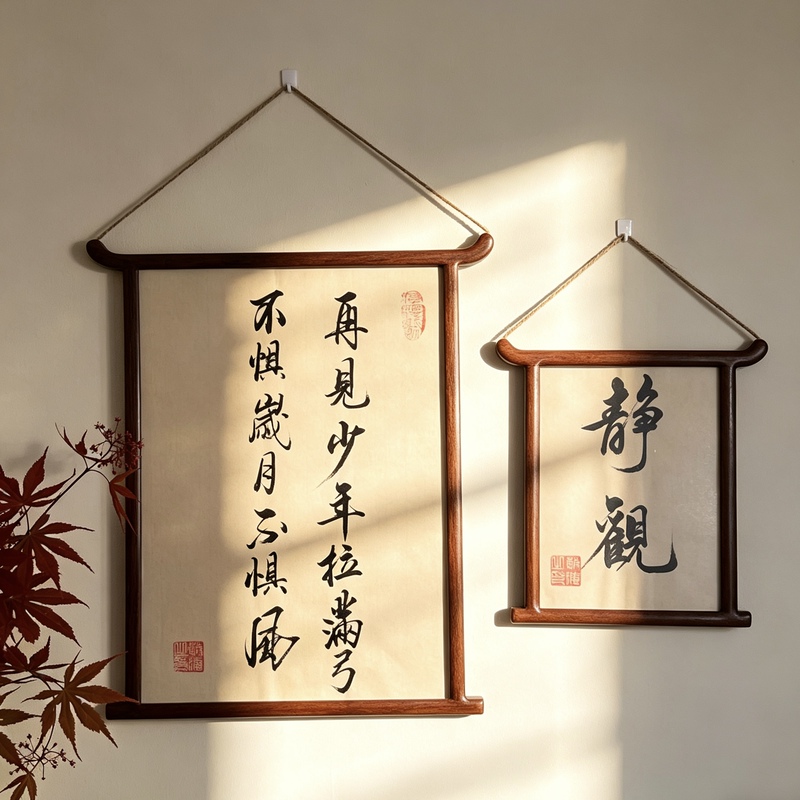 再見少年拉滿弓
不惧歲月不惧風
静觀